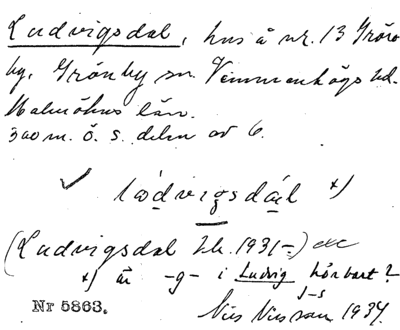 Ludvigsdal, hus å nr. 13 Grön
by, Grönby sn. Vemmenhögs hd.
Malmöhus län.
300 m. ö. s. delen av 6.
✓ lødvigsdál x)
(Ludvigsdal Jrb. 1931-)
x) är -g- i Ludvig hörbart?
j-s
Nr 5863. Nils Nilsson 1934